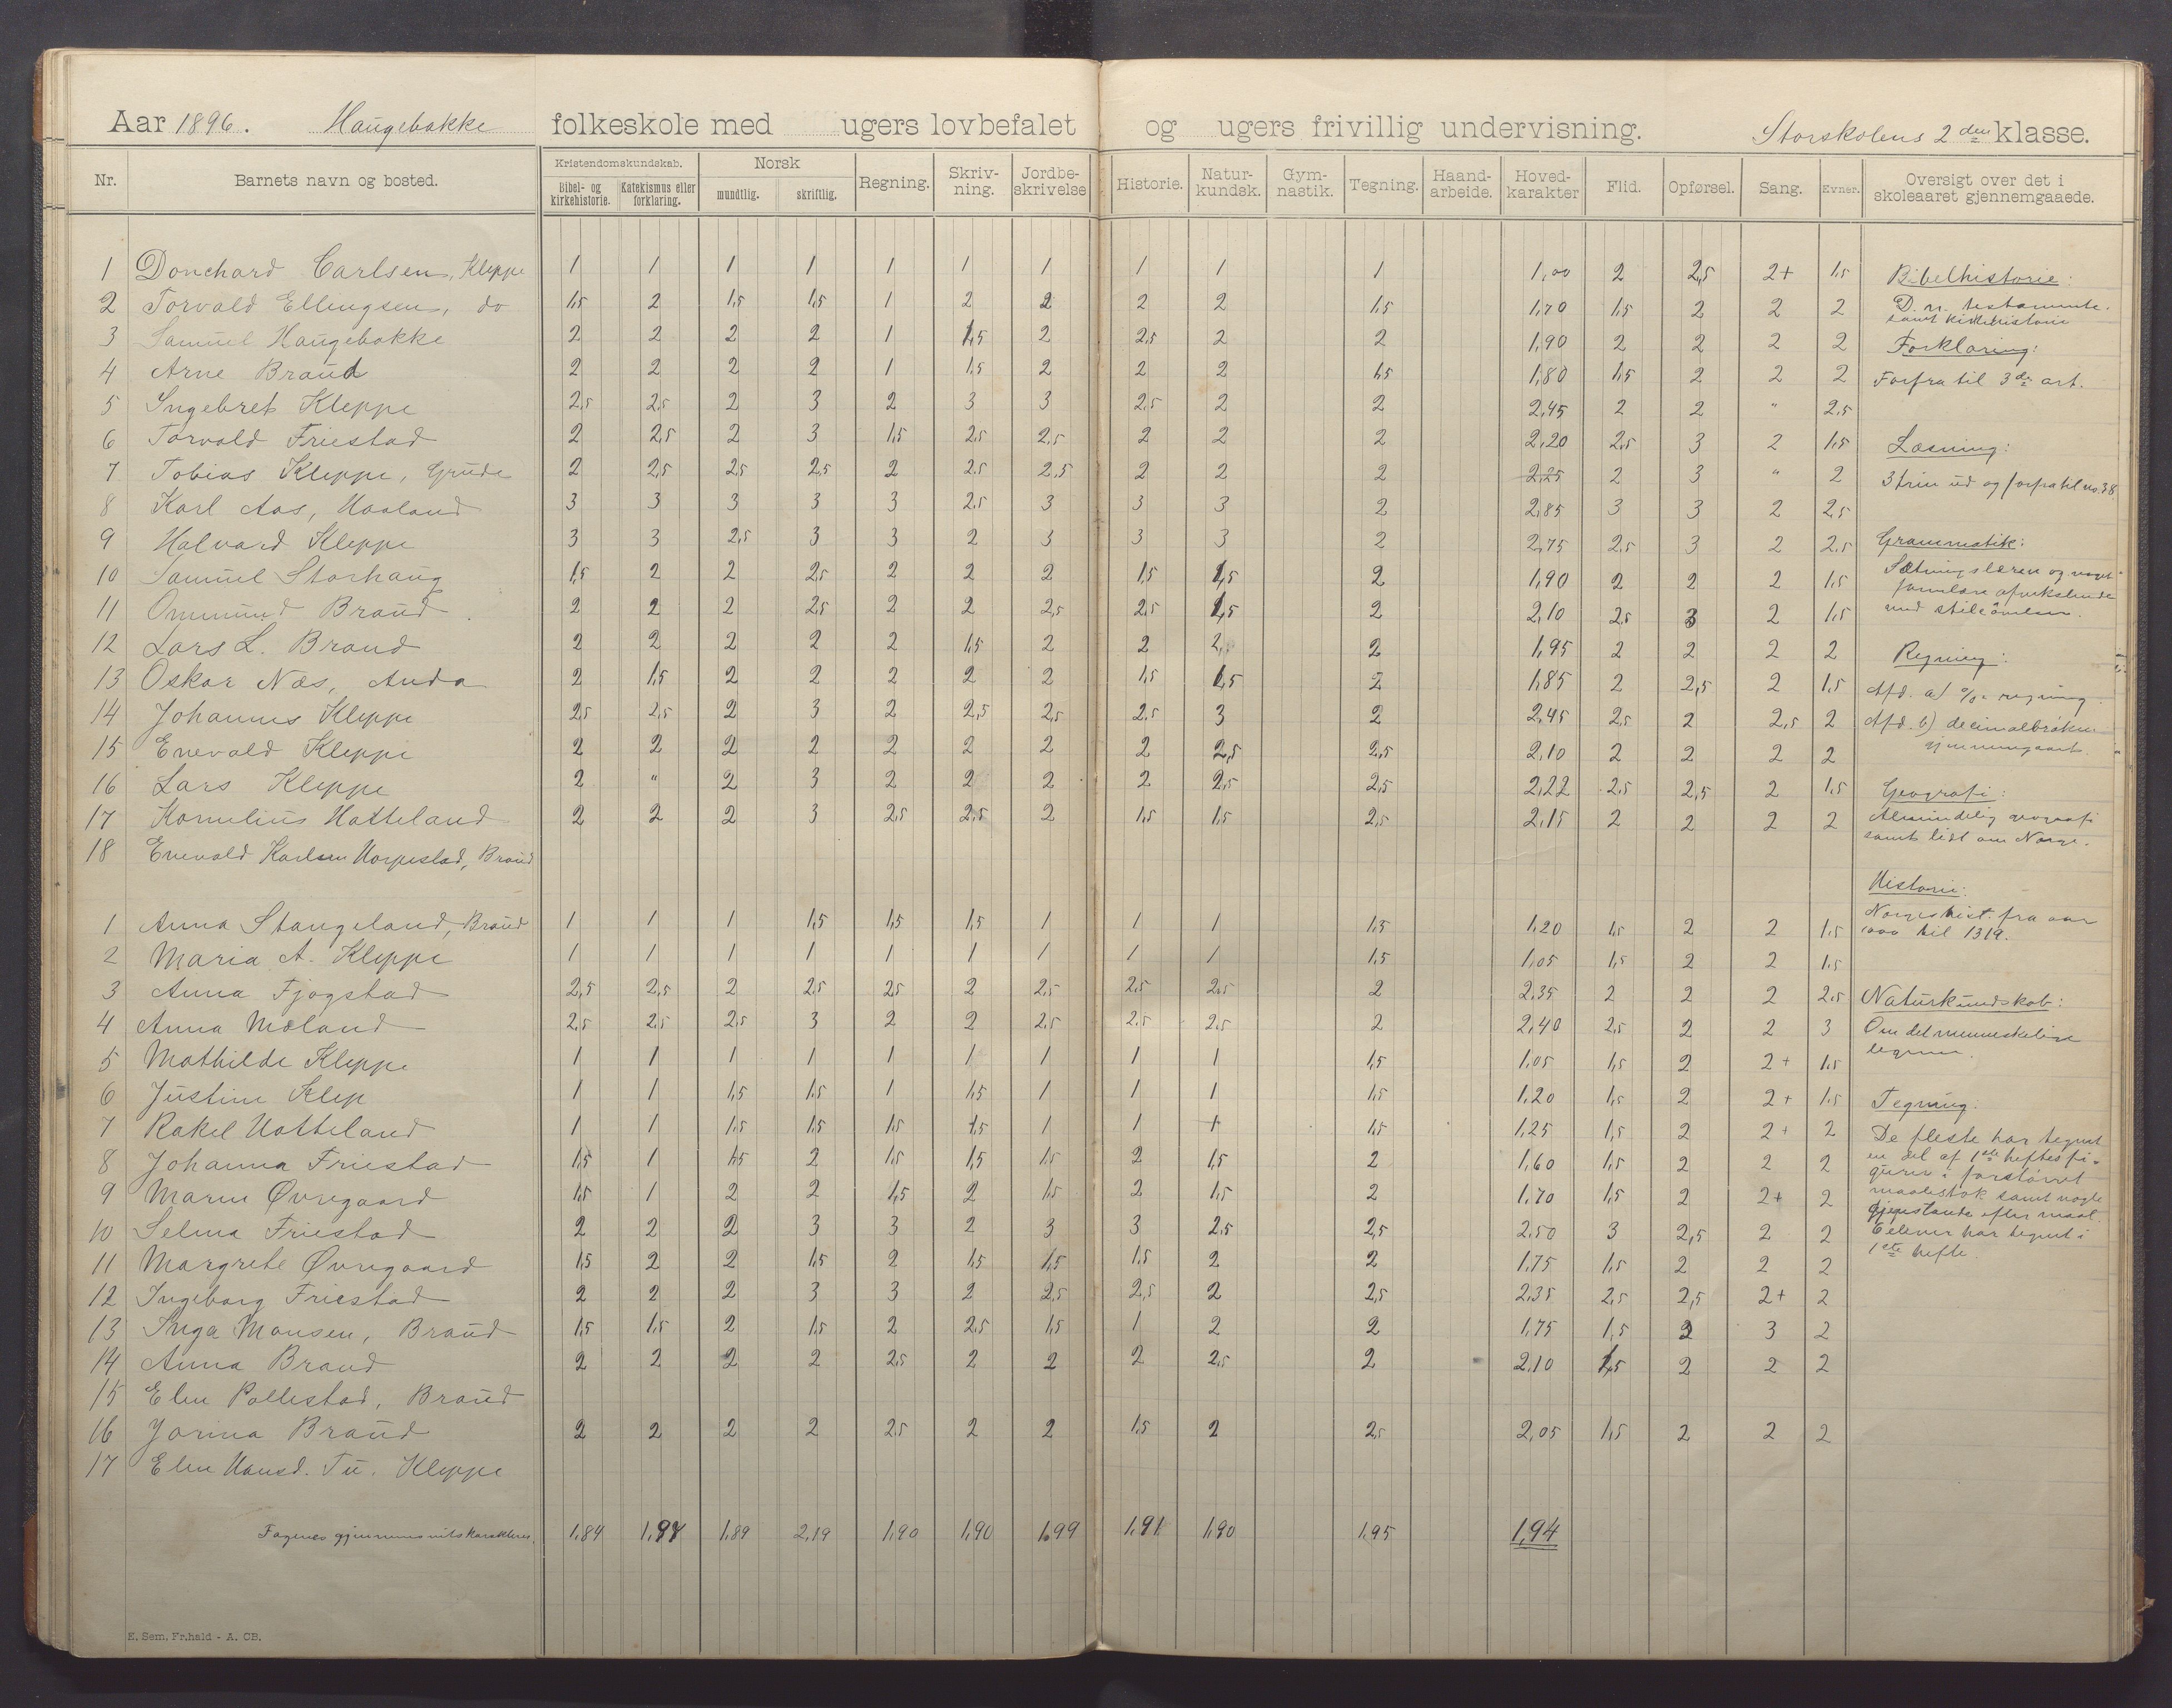 Aar 1896. Haugebakke folkeskole med ugers lovbefalet og ugers frivillig undervisning. Storskolens 2den klasse.
Nr. Barnets navn og bosted. Kristendomskundskab. Bibel- og kirkehistorie. Katekismus eller forklaring. Norsk mundtlig. skriftlig. Regning. Skriv-ning. Jordbe-skrivelse Historie. Natur-kundsk. Gym-nastik. Tegning. Haand-arbeide. Hoved-karakter Flid. Opførsel. Sang. Evner. Oversigt over det i skoleaaret gjennemgaaede.
1 Donchard Carlsen, Kleppe 1 1 1 1 1 1 1 1 1 1 1,00 2 2,5 2+ 1,5
2 Torvald Ellingsen, do 1,5 2 1,5 1,5 1 2 2 2 2 1,5 1,70 1,5 2 2 2
3 Samuel Haugebakke 2 2 2 2 1 1,5 2 2,5 2 2 1,90 2 2 2 2
4 Arne Braud 2 2 2 2 1 1,5 2 2 2 1,5 1,80 1,5 2 2 2
5 Ingebret Kleppe 2,5 2,5 2 3 2 3 3 2,5 2 2 2,45 2 2 " 2,5
6 Torvald Friestad 2 2,5 2 3 1,5 2,5 2,5 2 2 2 2,20 2,5 3 2 1,5
7 Tobias Kleppe, Grude 2 2,5 2,5 2,5 2 2,5 2,5 2 2 2 2,25 2 3 " 2
8 Karl Aas, Haaland 3 3 3 3 3 2,5 3 3 3 2 2,85 3 3 2 2,5
9 Halvard Kleppe 3 3 2,5 3 3 2 3 3 3 2 2,75 2,5 3 2 2,5
10 Samuel Storhaug 1,5 2 2 2,5 2 2 2 1,5 1,5 2 1,90 2 2 2 1,5
11 Ommund Braud 2 2 2 2,5 2 2 2,5 2,5 1,5 2 2,10 2,5 3 2 1,5
12 Lars L. Braud 2 2 2 2 2 1,5 2 2 2 2 1,95 2 2 2 2
13 Oskar Næs, Anda 2 1,5 2 2 2 2 2 1,5 1,5 2 1,85 2 2,5 2 1,5
14 Johannes Kleppe 2,5 2,5 2 3 2 2,5 2,5 2,5 3 2 2,45 2,5 2 2,5 2
15 Enevald Kleppe 2 2 2 2 2 2 2 2 2,5 2,5 2,10 2 2 2 2
16 Lars Kleppe 2 " 2 3 2 2 2 2 2,5 2,5 2,22 2,5 2,5 2 1,5
17 Kornelius Hatteland 2 2 2 3 2,5 2,5 2 1,5 1,5 2,5 2,15 2 2 2 2
18 Enevald Karlsen Horpestad, Braud
1 Anna Stangeland, Braud 1 1 1 1,5 1,5 1,5 1 1 1 1,5 1,20 1,5 2 2 1,5
2 Maria A. Kleppe 1 1 1 1 1 1 1 1 1 1,5 1,05 1,5 2 2 1,5
3 Anna Fjogstad 2,5 2,5 2 2,5 2,5 2 2,5 2,5 2,5 2 2,35 2 2 2 2,5
4 Anna Mæland 2,5 2,5 2,5 3 2 2 2,5 2,5 2,5 2 2,40 2,5 2 2 3
5 Mathilde Kleppe 1 1 1 1 1 1 1 1 1 1,5 1,05 1,5 2 2+ 1,5
6 Justine Klep 1 1 1,5 1,5 1 1,5 1 1 1 1,5 1,20 1,5 2 2+ 1,5
7 Rakel Hatteland 1 1 1,5 1,5 1,5 1,5 1 1 1 1,5 1,25 1,5 2 2+ 2
8 Johanna Friestad 1,5 1 1,5 2 1,5 1,5 1,5 2 1,5 2 1,60 1,5 2 2 2
9 Marie Øvregaard 1,5 1 2 2 1,5 2 1,5 2 1,5 2 1,70 1,5 2 2+ 2
10 Selma Friestad 2 2 2 3 3 2 3 3 2,5 2,5 2,50 3 2,5 2 2
11 Margrete Øvregaard 1,5 2 2 1,5 2 1,5 1,5 1,5 2 2 1,75 1,5 2 2 2
12 Ingeborg Friestad 2 2 2 3 3 2 2,5 2,5 2 2,5 2,35 2,5 2,5 2+ 2
13 Inga Monsen, Braud 1,5 1,5 2 1,5 2 2,5 1,5 1 2 2 1,75 1,5 2 3 2
14 Anna Braud 2 2 2 2 2,5 2 2 2 2,5 2 2,10 1,5 2 2 2
15 Elen Pollestad, Braud
16 Jorina Braud 2 2 2 2 2,5 2 2 1,5 2 2,5 2,05 1,5 2 2 2
17 Elen Hansd. Tu. Kleppe
Fagenes gjennemsnitskarakterer. 1,84 1,94 1,89 2,19 1,90 1,90 1,99 1,91 1,90 1,95 1,94
Bibelhistorie:
D. n. testamente.
samt kirkehistorie
Forklaring:
Forfra til 3de art.
Læsning:
3 trin ud og forfra til no. 38
Grammatik:
Sætningslæren og noget
formlære afvekslende
med stiløvelser.
Regning:
Afd. a) %regning.
Afd. b) decimalbrøken
gjennemgaaet.
Geografi:
Almindelig geografi
samt lidt om Norge.
Historie:
Norgeshist. fra aar
1000 til 1319.
Naturkundskab:
Om det menneskelige
legeme.
Tegning:
De fleste har tegnet
en del af 1ste heftes fi-
gurer i forstørret
maalestok samt nogle
gjenstande efter maal.
6 elever har tegnet i
1ste hefte.
E. Sem, Fr.hald - A. CB.